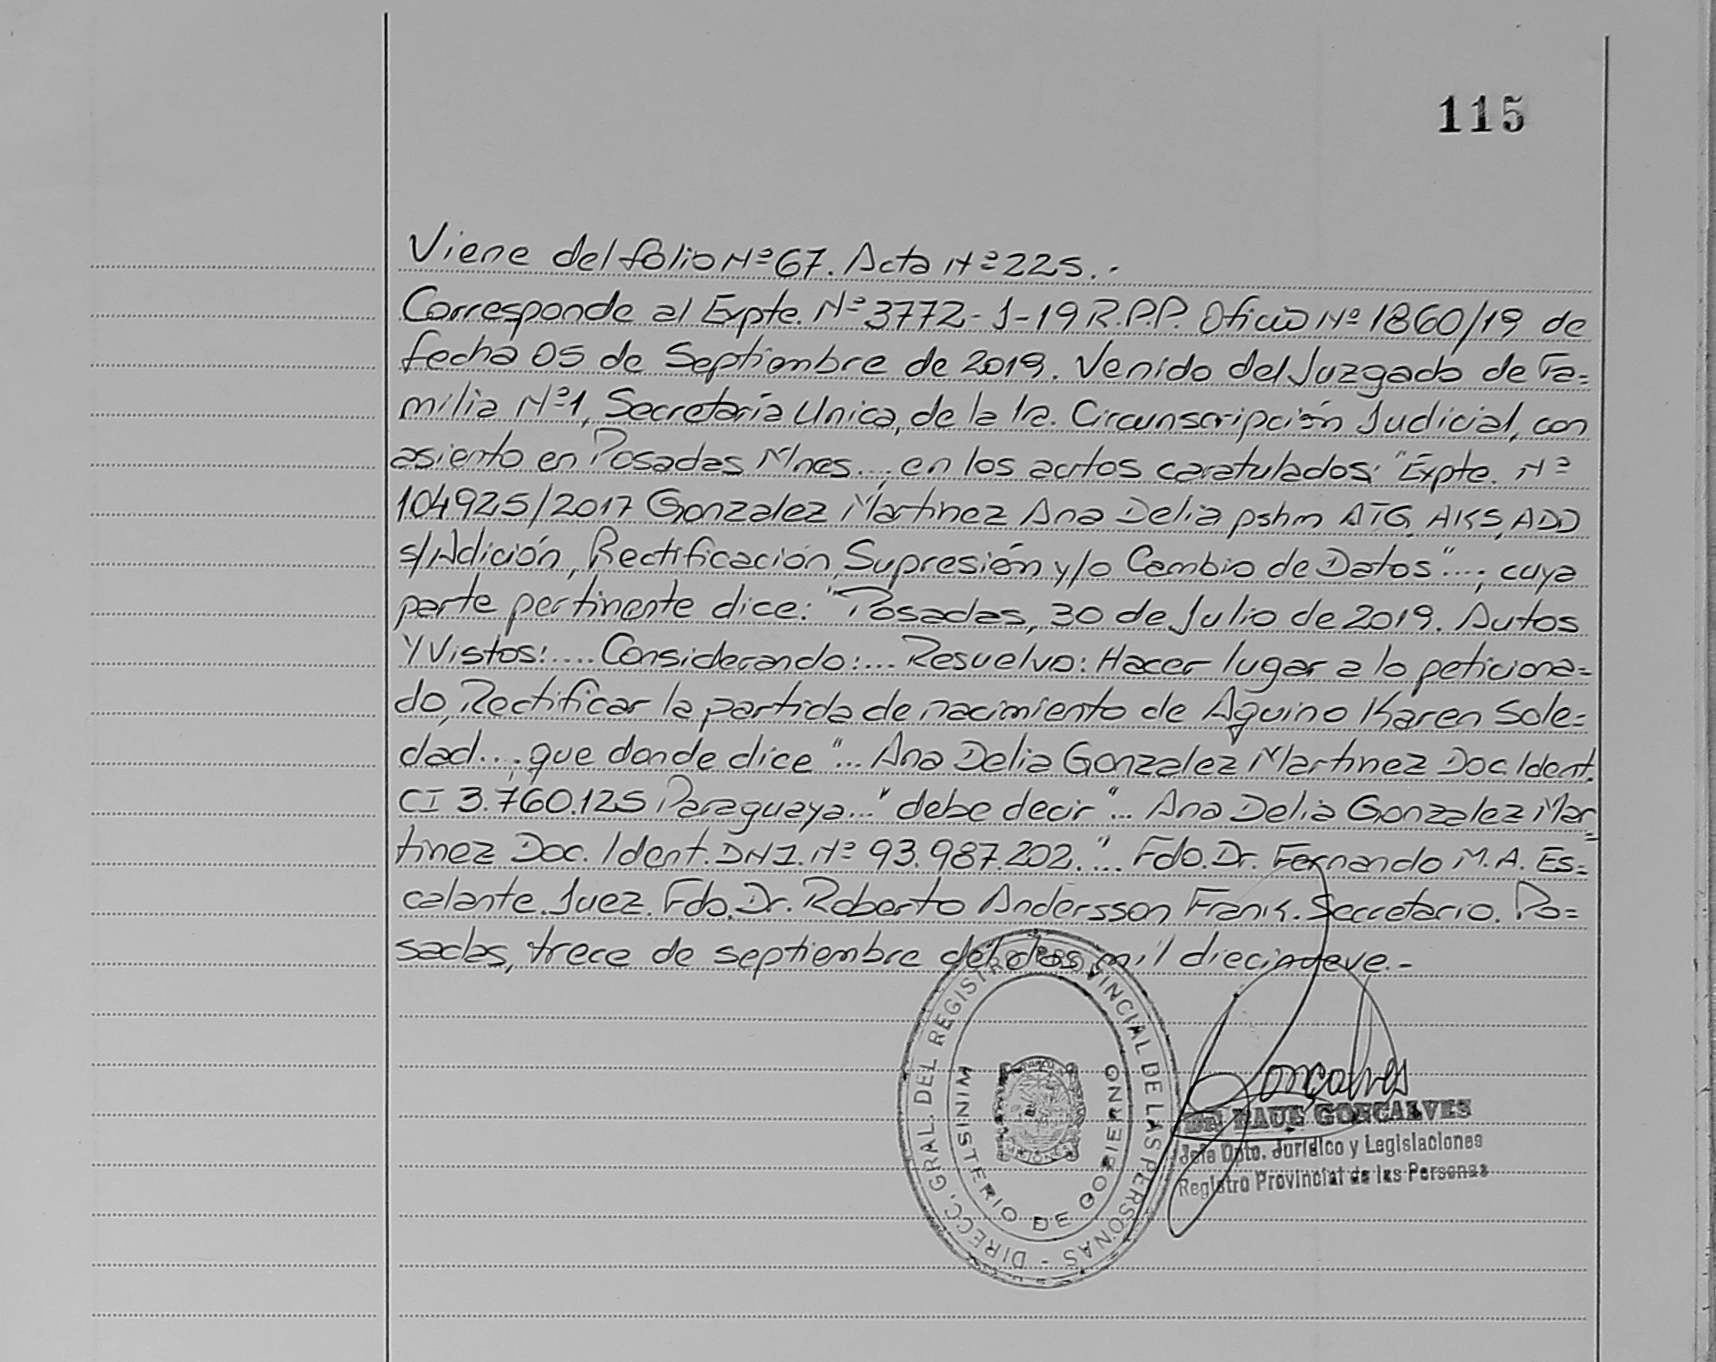 115
Viene del folio Nº 67. Acta Nº 225..
Corresponde al Expte. Nº 3772-J-19 R.P.P. Oficio Nº 1860/19 de
fecha 05 de Septiembre de 2019. Venido del Juzgado de Fa=
milia Nº1, Secretaría Unica, de la 1ra. Circunscripción Judicial, con
asiento en Posadas Mnes...; en los autos caratulados: "Expte. Nº
104925/2017 Gonzalez Martinez Ana Delia pshm ATG, AKS, ADD
s/Adición, Rectificación, Supresión y/o Cambio de Datos"...; cuya
parte pertinente dice: "Posadas, 30 de Julio de 2019. Autos
Y Vistos:.... Considerando:... Resuelvo: Hacer lugar a lo peticiona=
do, Rectificar la partida de nacimiento de Aquino Karen Sole=
dad...; que donde dice "... Ana Delia Gonzalez Martinez Doc. Ident.
CI 3.760.125 Paraguaya..." debe decir "... Ana Delia Gonzalez Mar=
tinez Doc. Ident. DNI. Nº 93.987.202."... Fdo. Dr. Fernando M.A. Es=
calante. Juez. Fdo. Dr. Roberto Andersson Frank. Secretario. Po=
sadas, trece de septiembre del dos mil diecinueve.-
DIRECC. GRAL. DEL REGISTRO PROVINCIAL DE LAS PERSONAS -
MINISTERIO DE GOBIERNO
Gonçalves
DR RAUL GONCALVES
Jefe Dpto. Jurídico y Legislaciones
Registro Provincial de las Personas